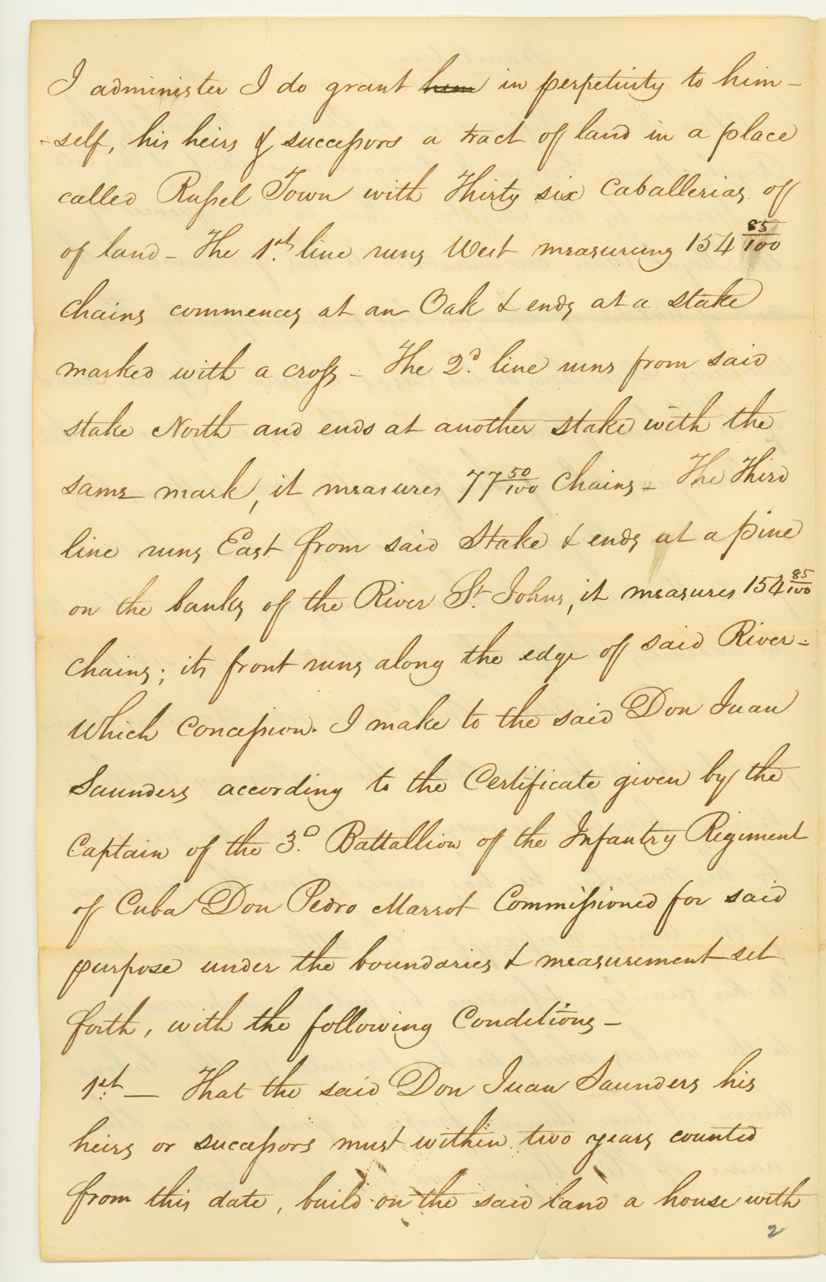 I administer I do grant him in perpetuity to him-
-self, his heirs & successors a tract of land in a place
called Russel Town with Thirty six Caballerias of
of land - The 1st line runs West measureing 154 85/100
chains commences at an Oak & ends at a stake
marked with a cross - The 2d line runs from said
stake North and ends at another stake with the
same mark, it measures 77 50/100 Chains - The Third
line runs East from said Stake & ends at a pine
on the banks of the River St. Johns, it measures 154 85/100
chains; its front runs along the edge of said River -
Which Concession I make to the said Don Juan
Saunders according to the Certificate given by the
Captain of the 3d Battallion of the Infantry Regiment
of Cuba Don Pedro Marrot Commissioned for said
purpose under the boundaries & measurement set
forth, with the following Conditions -
1st — That the said Don Juan Saunders his
heirs or successors must within two years counted
from this date, build on the said land a house with
2